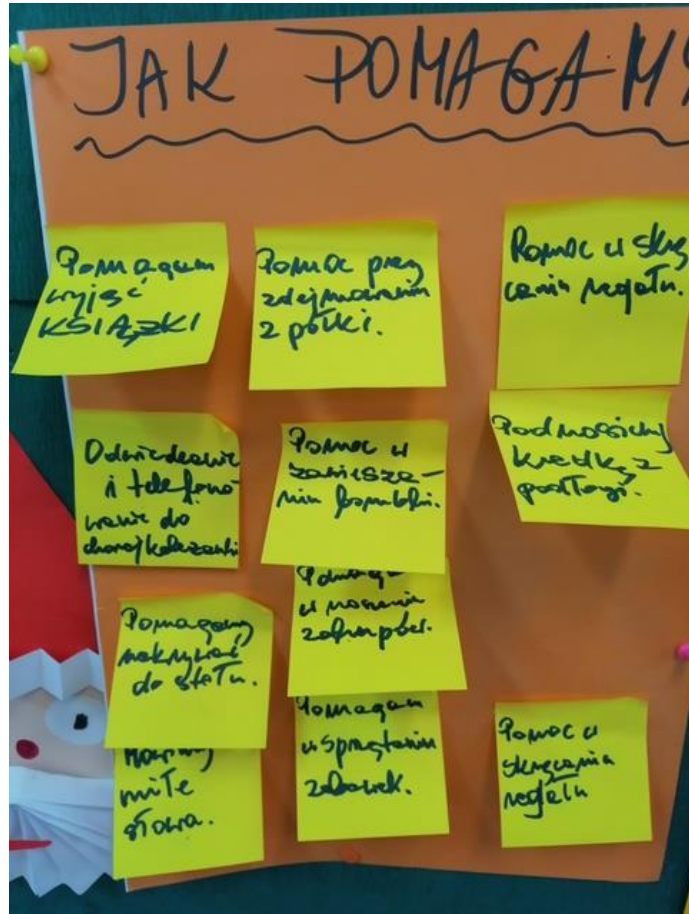 JAK POMAGAMY
Pomagam
wyjąć
KSIĄŻKI
Pomoc przy
zdejmowaniu
z półki.
Pomoc w skrę
caniu regału.
Odwiedzanie
i telefono
wanie do
chorej koleżanki
Pomoc w
zawiesza-
niu
Podnosimy
kredkę z
podłogi.
Pomagamy
nakrywać
do stołu.
w noszeniu
zakupów.
miłe
słowa.
Pomagam
w sprzątaniu
zabawek.
Pomoc w
skręcaniu
regału